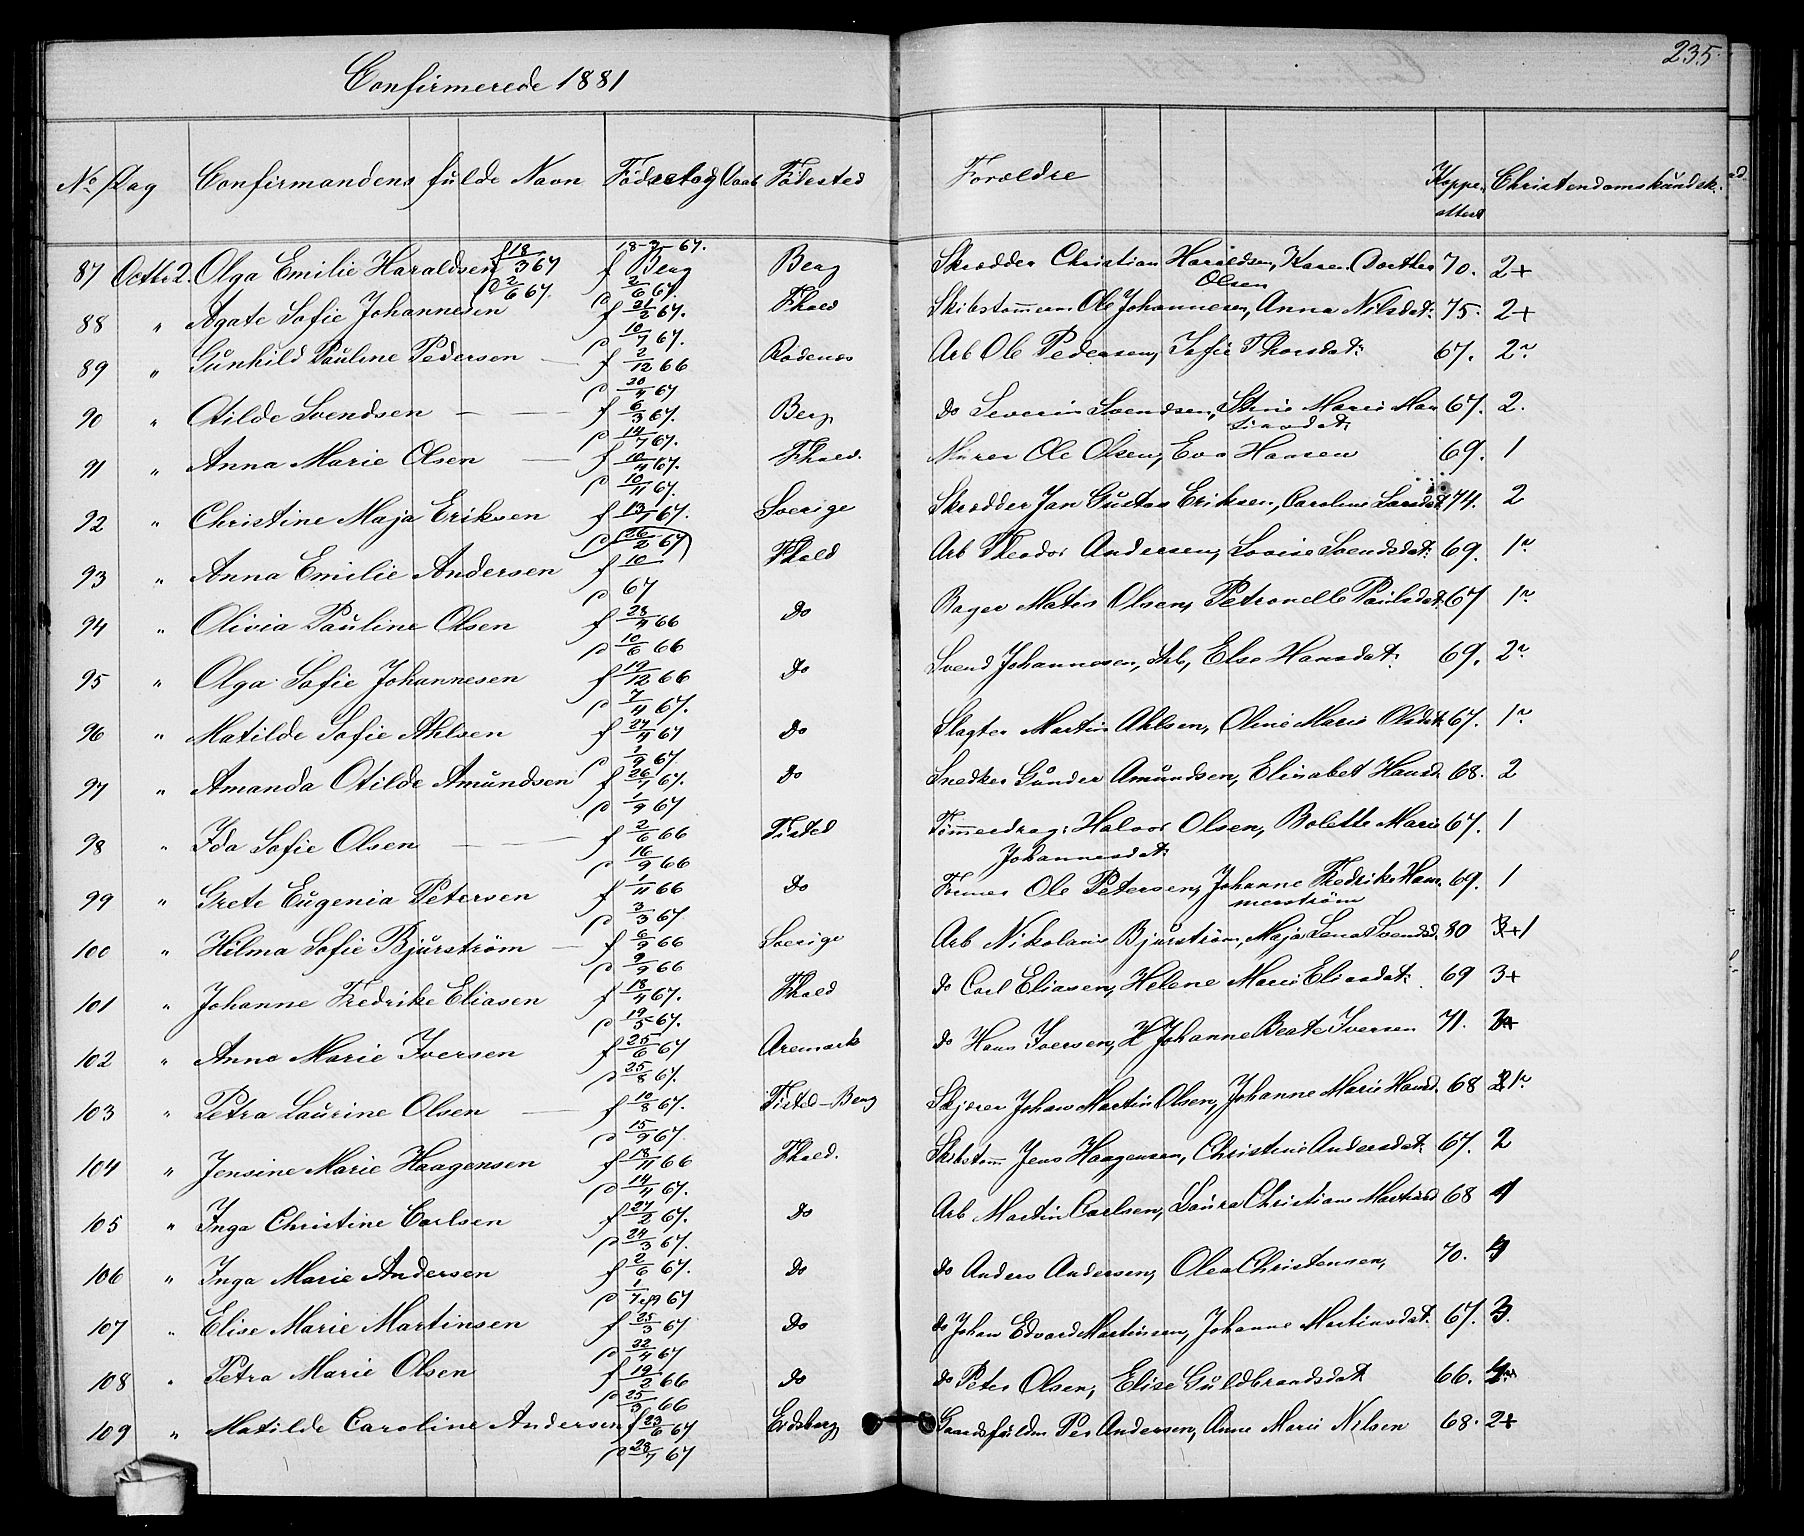 Confirmerede 1881
235.
No Dag Confirmandens fulde Navn Fødselsdag Daab Fødested Forældre Koppe- Christendomskundsk.
attest
87 Octbr 2. Olga Emilie Haraldsen f 18/3 67 18-3-67. f Berg Berg Skrædder Christian Haraldsen, Karen Dorthea 70. 2+
Olsen
p 2/6 67. p 2/6 67
88 " Agate Sofie Johannesen f 21/2 67. Fhald Skibstømm Ole Johannesen, Anna Nilsdat: 75. 2+
p 10/7 67.
89 " Gunhild Pauline Pedersen f 2/12 66 Rødenæs Arb Ole Pedersen, Sofie Thorsdat: 67. 2
p 20/4 67
90 " Otilde Svendsen f 6/3 67. Berg do Severin Svendsen, Marie Mar 67. 2.
tinsdat:
p 14/7 67.
91 " Anna Marie Olsen f 10/4 67. Fhald. Murer Ole Olsen, Eva Hansen 69. 1
p 10/11 67.
92 " Christine Maja Eriksen f 13/1 67. Sverige Skrædder Jan Gustav Eriksen, Caroline Larsdat 74. 2
p 26/2 67
93 " Anna Emilie Andersen f 10 Fhald Arb Theodor Andersen, Lovise Svendsdat: 69. 1
p 67
94 " Olivia Pauline Olsen f 28/4 66 do Bager Mates Olsen, Petronelle Paulsdat: 67 1
p 10/6 66
95 " Olga Sofie Johannesen f 19/12 66 do Svend Johannesen, Arb, Else Hansdat: 69. 2
p 7/4 67.
96 " Matilde Sofie Ahlsen f 27/4 67 do Slagter Martin Ahlsen, Oline Marie Olsdat: 67. 1
p 1/9 67.
97 " Amanda Otilde Amundsen f 26/7 67. do Snedker Gunder Amundsen, Elisabet Hansd. 68. 2
p 1/9 67
98 " Ida Sofie Olsen f 2/6 66 Tisted Tømmerdrag: Halvor Olsen, Bolette Marie 67. 1
Johannesdat:
p 16/9 66
99 " Grete Eugenia Petersen f 1/11 66 do Former Ole Petersen, Johanne Fredrike Ham 69. 1
merstrøm
p 3/3 67.
100 " Hilma Sofie Bjurstrøm f 6/9 66 Sverige Arb Nikolaus Bjurstrøm, Maja Lena Svendsd. 80 1
p 9/9 66
101 " Johanne Fredrike Eliasen f 18/4 67. Fhald do Carl Eliasen, Helene Marie Eliasdat: 69 3+
p 19/5 67.
102 " Anna Marie Iversen f 25/6 67 Aremark do Hans Iversen, H Johanne Beate Iversen 71.
p 25/8 67.
103 " Petra Laurine Olsen f 10/8 67. Tisted-Berg Skjærer Johan Martin Olsen, Johanne Marie Hansd. 68 1
p 15/9 67
104 " Jensine Marie Haagensen f 18/11 66 Fhald. Skibstøm Jens Haagensen, Christine Andersdat: 67. 2
p 14/4 67.
105 " Inga Christine Carlsen f 27/2 67. do Arb Martin Carlsen, Laura Christiane Martinsd 68 4
p 24/3 67.
106 " Inga Marie Andersen f 2/6 67. do do Anders Andersen, Olea Christensen, 70.
p 1/7 67
107 " Elise Marie Martinsen f 25/3 67 do do Johan Edvard Martinsen, Johanne Martinsdat. 67. 3.
p 22/4 67
108 " Petra Marie Olsen f 19/2 66 do do Peter Olsen, Elise Guldbrandsdat 66.
p 25/3 66
109 " Matilde Caroline Andersen f 23/6 67 Eidsberg Gaardsfuldm Per Andersen, Anne Marie Nilsen 68. 2+
p 28/7 67